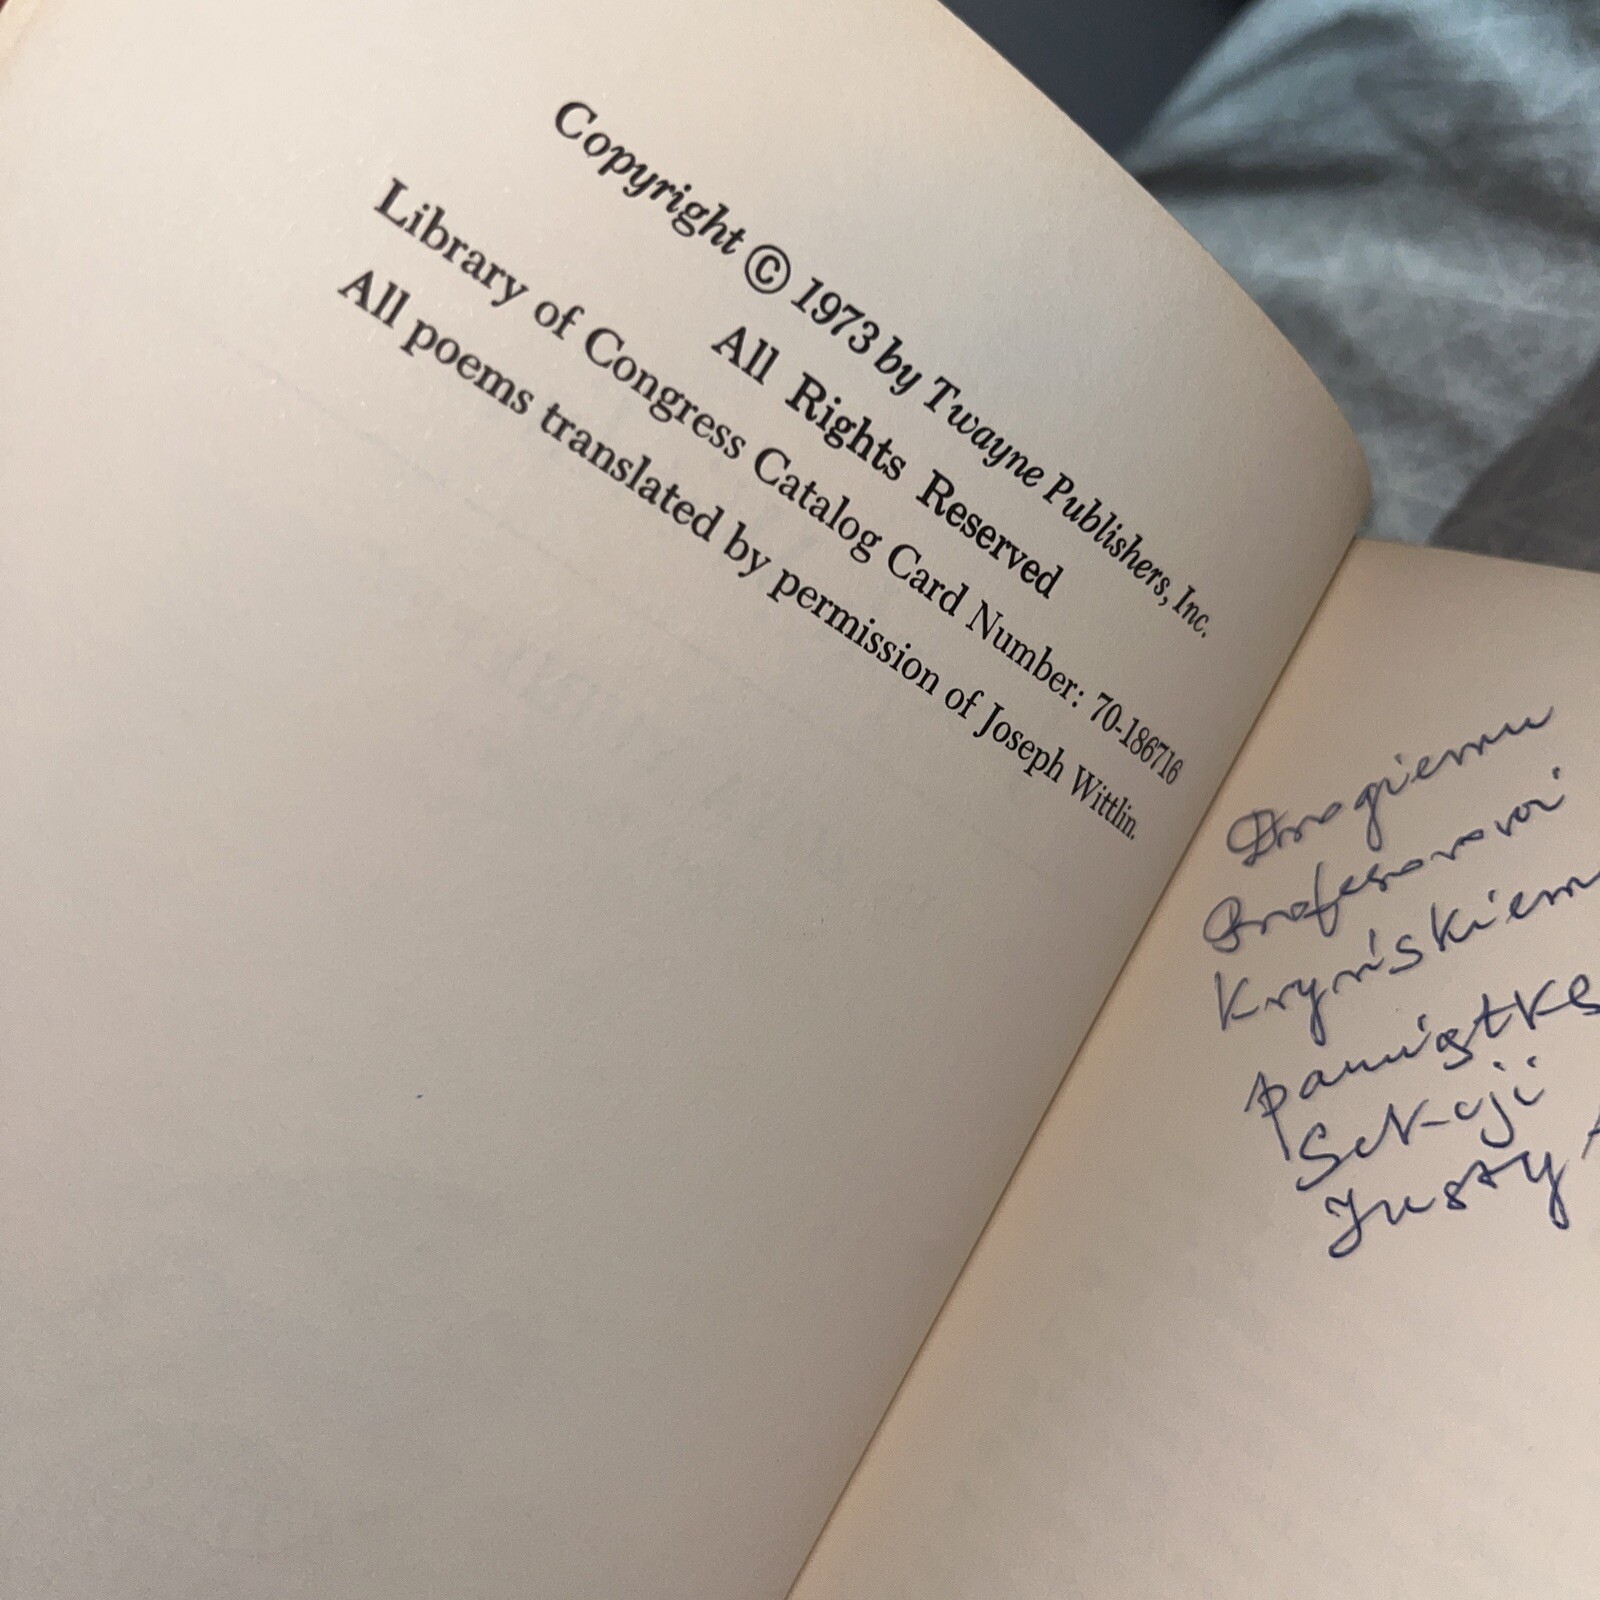 Copyright © 1973 by Twayne Publishers, Inc.
All Rights Reserved
Library of Congress Catalog Card Number: 70-186716
All poems translated by permission of Joseph Wittlin.
Drogiemu
Profesorowi
Kryńskiemu
pamiątkę
Sekcji